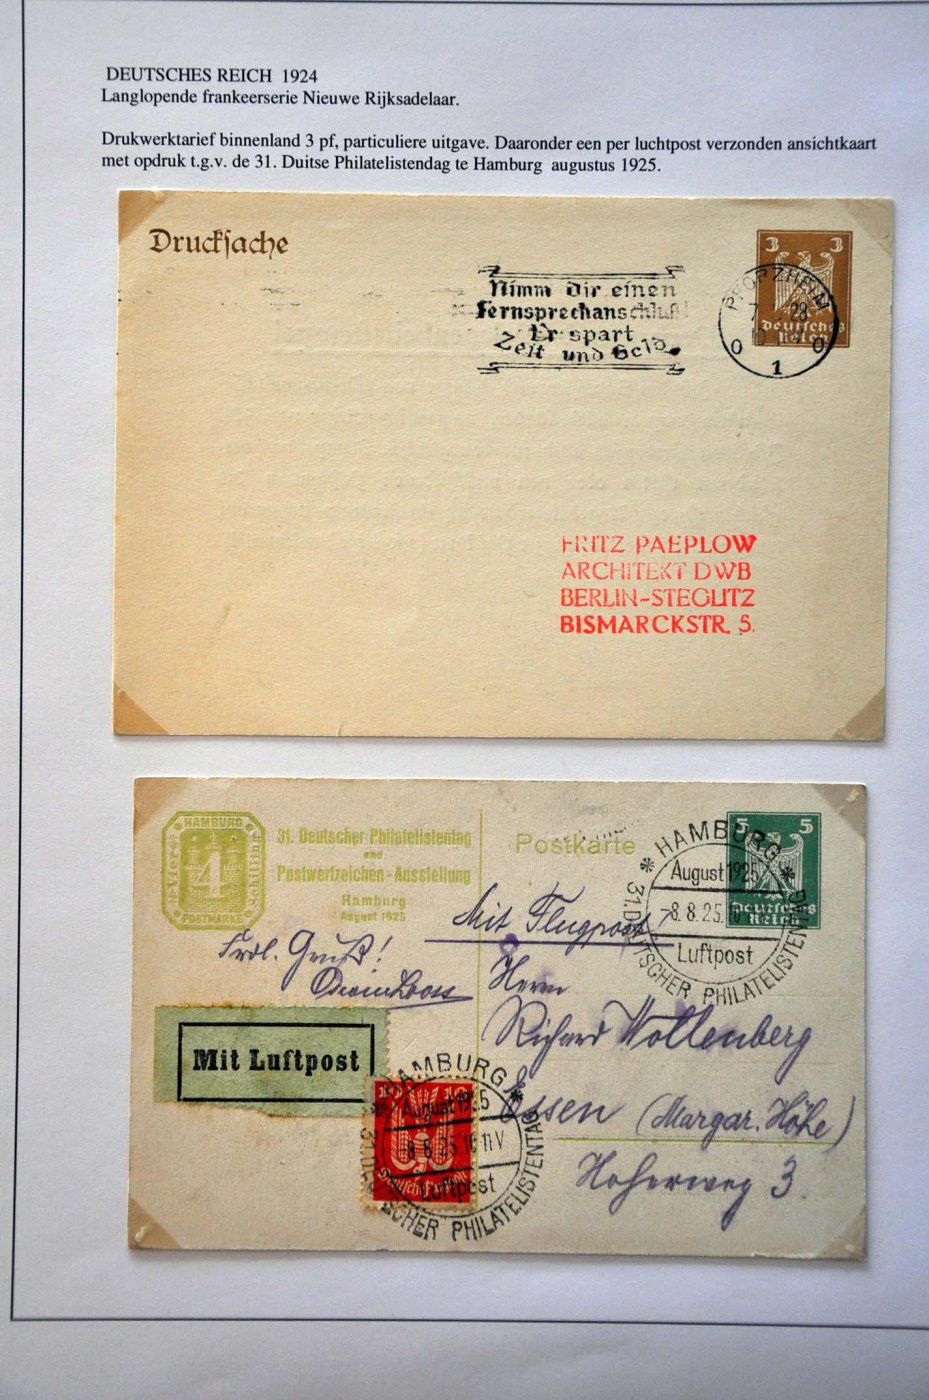 DEUTSCHES REICH 1924
Langlopende frankeerserie Nieuwe Rijksadelaar.
Drukwerktarief binnenland 3 pf, particuliere uitgave. Daaronder een per luchtpost verzonden ansichtkaart
met opdruk t.g.v. de 31. Duitse Philatelistendag te Hamburg augustus 1925.
Drucksache
3 3
Deutsches
Reich
PFORZHEIM
7 28
1
Nimm dir einen
Fernsprechanschluß
Er spart
Zeit und Geld
FRITZ PAEPLOW
ARCHITEKT DWB
BERLIN-STEGLITZ
BISMARCKSTR. 5.
HAMBURG
Vier 4 Schilling
POSTMARKE
31. Deutscher Philatelistentag
und
Postwertzeichen-Ausstellung
Hamburg
August 1925
Postkarte
5 5
Deutsches
Reich
HAMBURG
August 1925
-8.8.25.10
Luftpost
31. DEUTSCHER PHILATELISTENTAG
Mit Flugpost
Frdl. Gruß!
Herrn
Richard Wollenberg
Essen (Margar. Höhe)
Hoherweg 3.
Mit Luftpost
10 10
HAMBURG
August 1925
8.8.25 10-11V
Luftpost
31. DEUTSCHER PHILATELISTENTAG